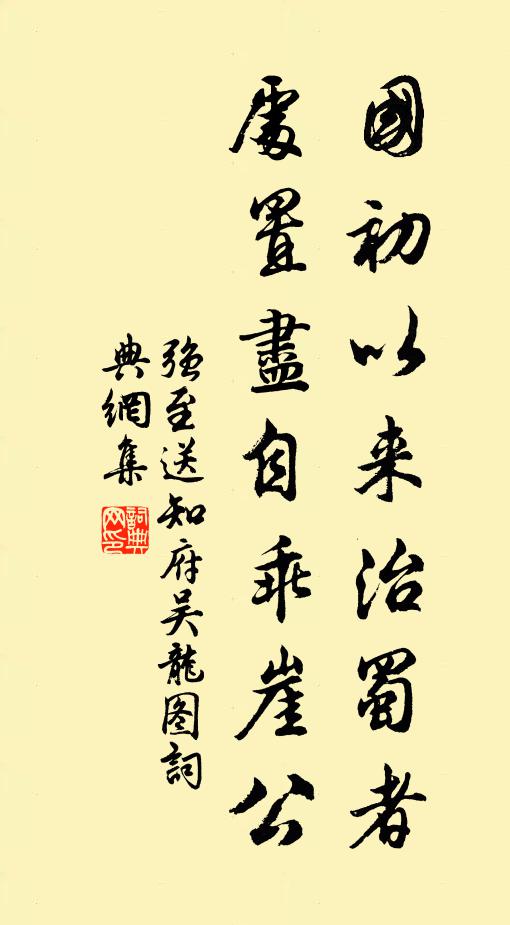 國初以来治蜀者
處置盡自乖崖公
強至送知府吴龍图詞
典網集
詞典
网印